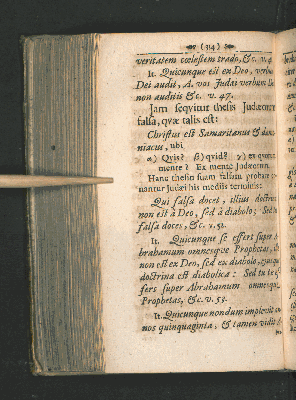 (314)
veritatem cœlestem trado, &c. v. 4
It. Quicunque est ex Deo, verbum
Dei audit, A. vos Judæi verbum Dei
non auditis &c. v. 47.
Jam sequitur thesis Judæorum
falsa, quæ talis est:
Christus est Samaritanus & dæmo-
niacus, ubi
α) Qvis? β) qvid? γ) ex quorum
mente? Ex mente Judæorum.
Hanc thesin suam falsam probare co-
nantur Judæi his mediis terminis:
Qui falsa docet, illius doctrina
non est à Deo, sed à diabolo: Sed tu
falsa doces, &c. v. 52.
It. Quicunque se effert super A-
brahamum omnesque Prophetas, ille
non est ex Deo, sed ex diabolo, ejusque
doctrina est diabolica: Sed tu te ef-
fers super Abrahamum omnesque
Prophetas, &c. v. 53.
It. Quicunque nondum implevit an-
nos quinquaginta, & tamen vidit